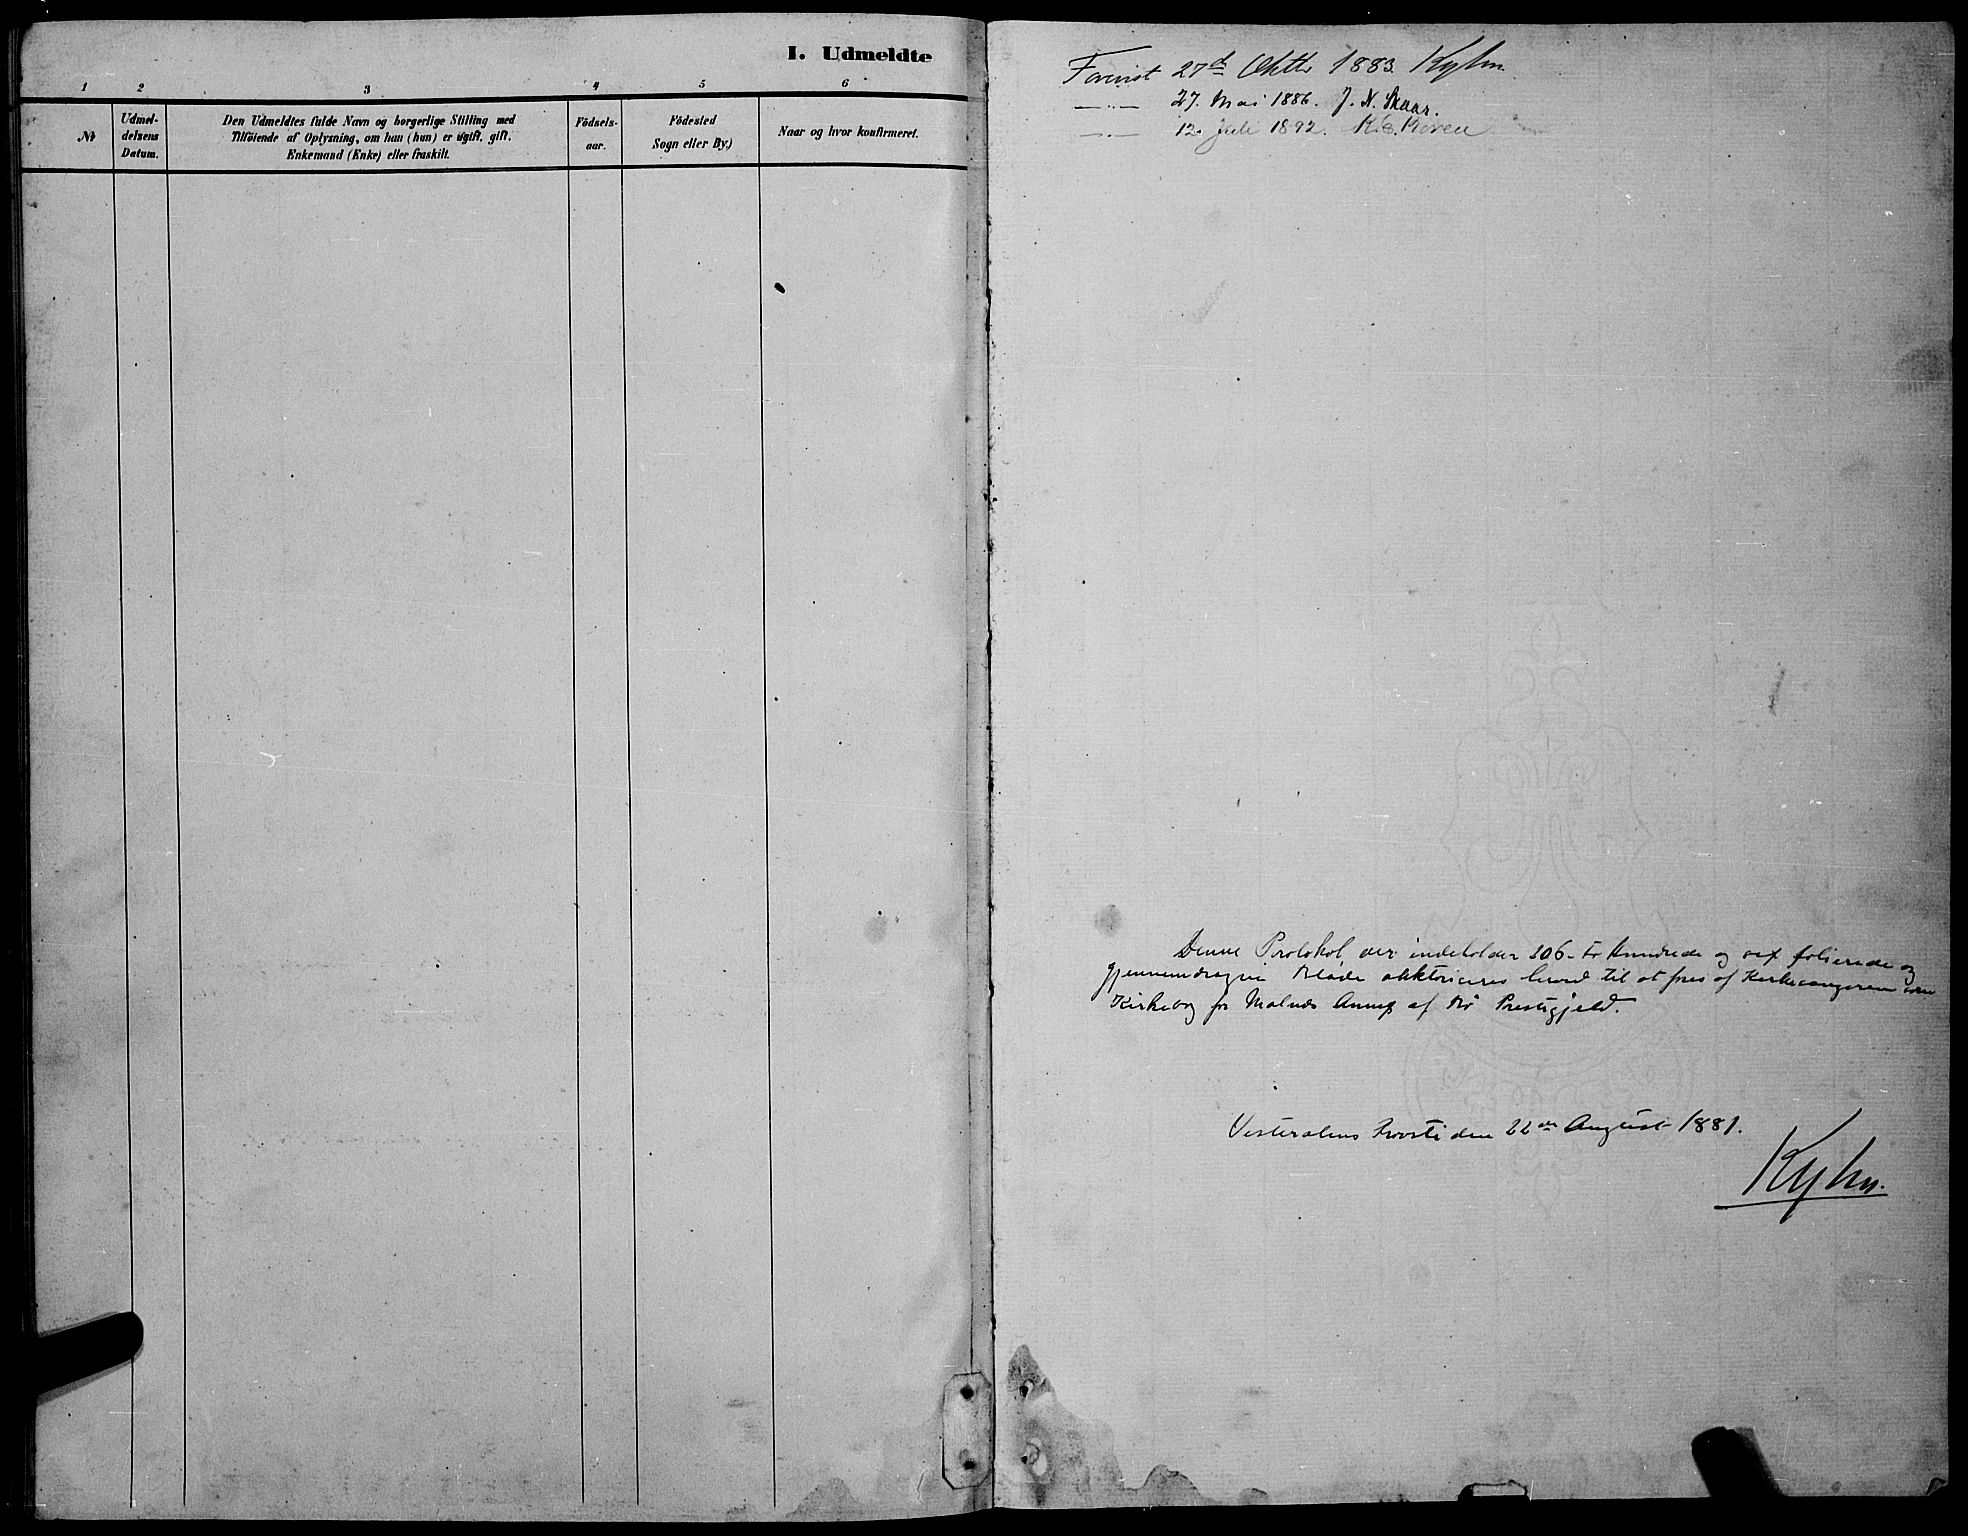 I. Udmeldte
1 2 3 4 5 6
№
Udmel-
delsens
Datum.
Den Udmeldtes fulde Navn og borgerlige Stilling med
Tilföiende af Oplysning, om han (hun) er ugift, gift,
Enkemand (Enke) eller fraskilt.
Födsels-
aar.
Födested
Sogn eller By.)
Naar og hvor konfirmeret.
Forevist 27d Oktbr 1883. Kyhn
—"— 27. Mai 1886. J. N. Skaar.
—"— 12. Juli 1892.
Denne Protokol, der indeholder 206 - to Hundrede og sex folierede og
gjennemdragne Blade auktoriseres herved til at føres af Kirkesangeren som
Kirkebog for Malnes Annex af Bø Prestegjeld.
Vesteraalens Provsti den 22de August 1881.
Kyhn.